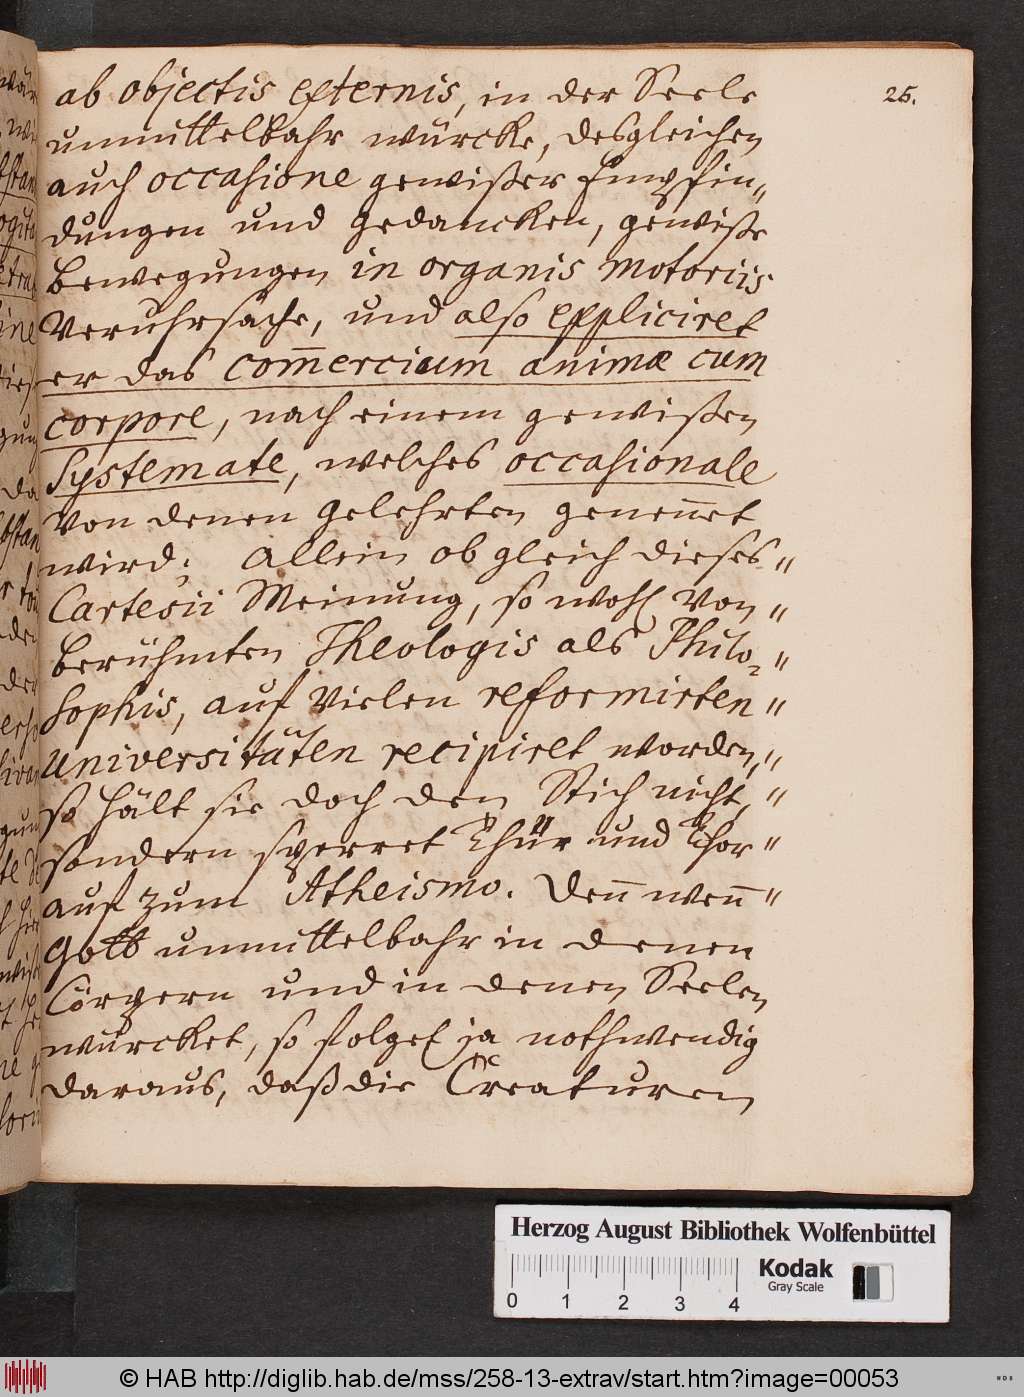 25.
ab objectis externis, in der Seele
unmittelbahr würcke, desgleichen
auch occasione gewißer Empfin„
dungen und Gedancken, gewiße
Bewegungen in organis motoriis
Veruhrsache, und also expliciret
er das Com̄ercium animæ cum
corpore, nach einem gewißen
Systemate, welches occasionale
Von denen Gelehrten genen̄et
wird; Allein ob gleich dieses "
Cartesii Meinung, so wohl Von "
berühmten Theologis als Philo= "
sophis, auf Vielen reformirten "
Universitäten recipiret worden, "
so hält sie doch den Stich nicht, "
sondern sperret Thür und Thor "
auf zum Atheismo. Den̄ wen̄ "
Gott unmittelbahr in denen
Cörpern und in denen Seelen
würcket, so folget ja nothwendig
daraus, daß die Creaturen
Herzog August Bibliothek Wolfenbüttel
Kodak
Gray Scale
0 1 2 3 4
© HAB http://diglib.hab.de/mss/258-13-extrav/start.htm?image=00053